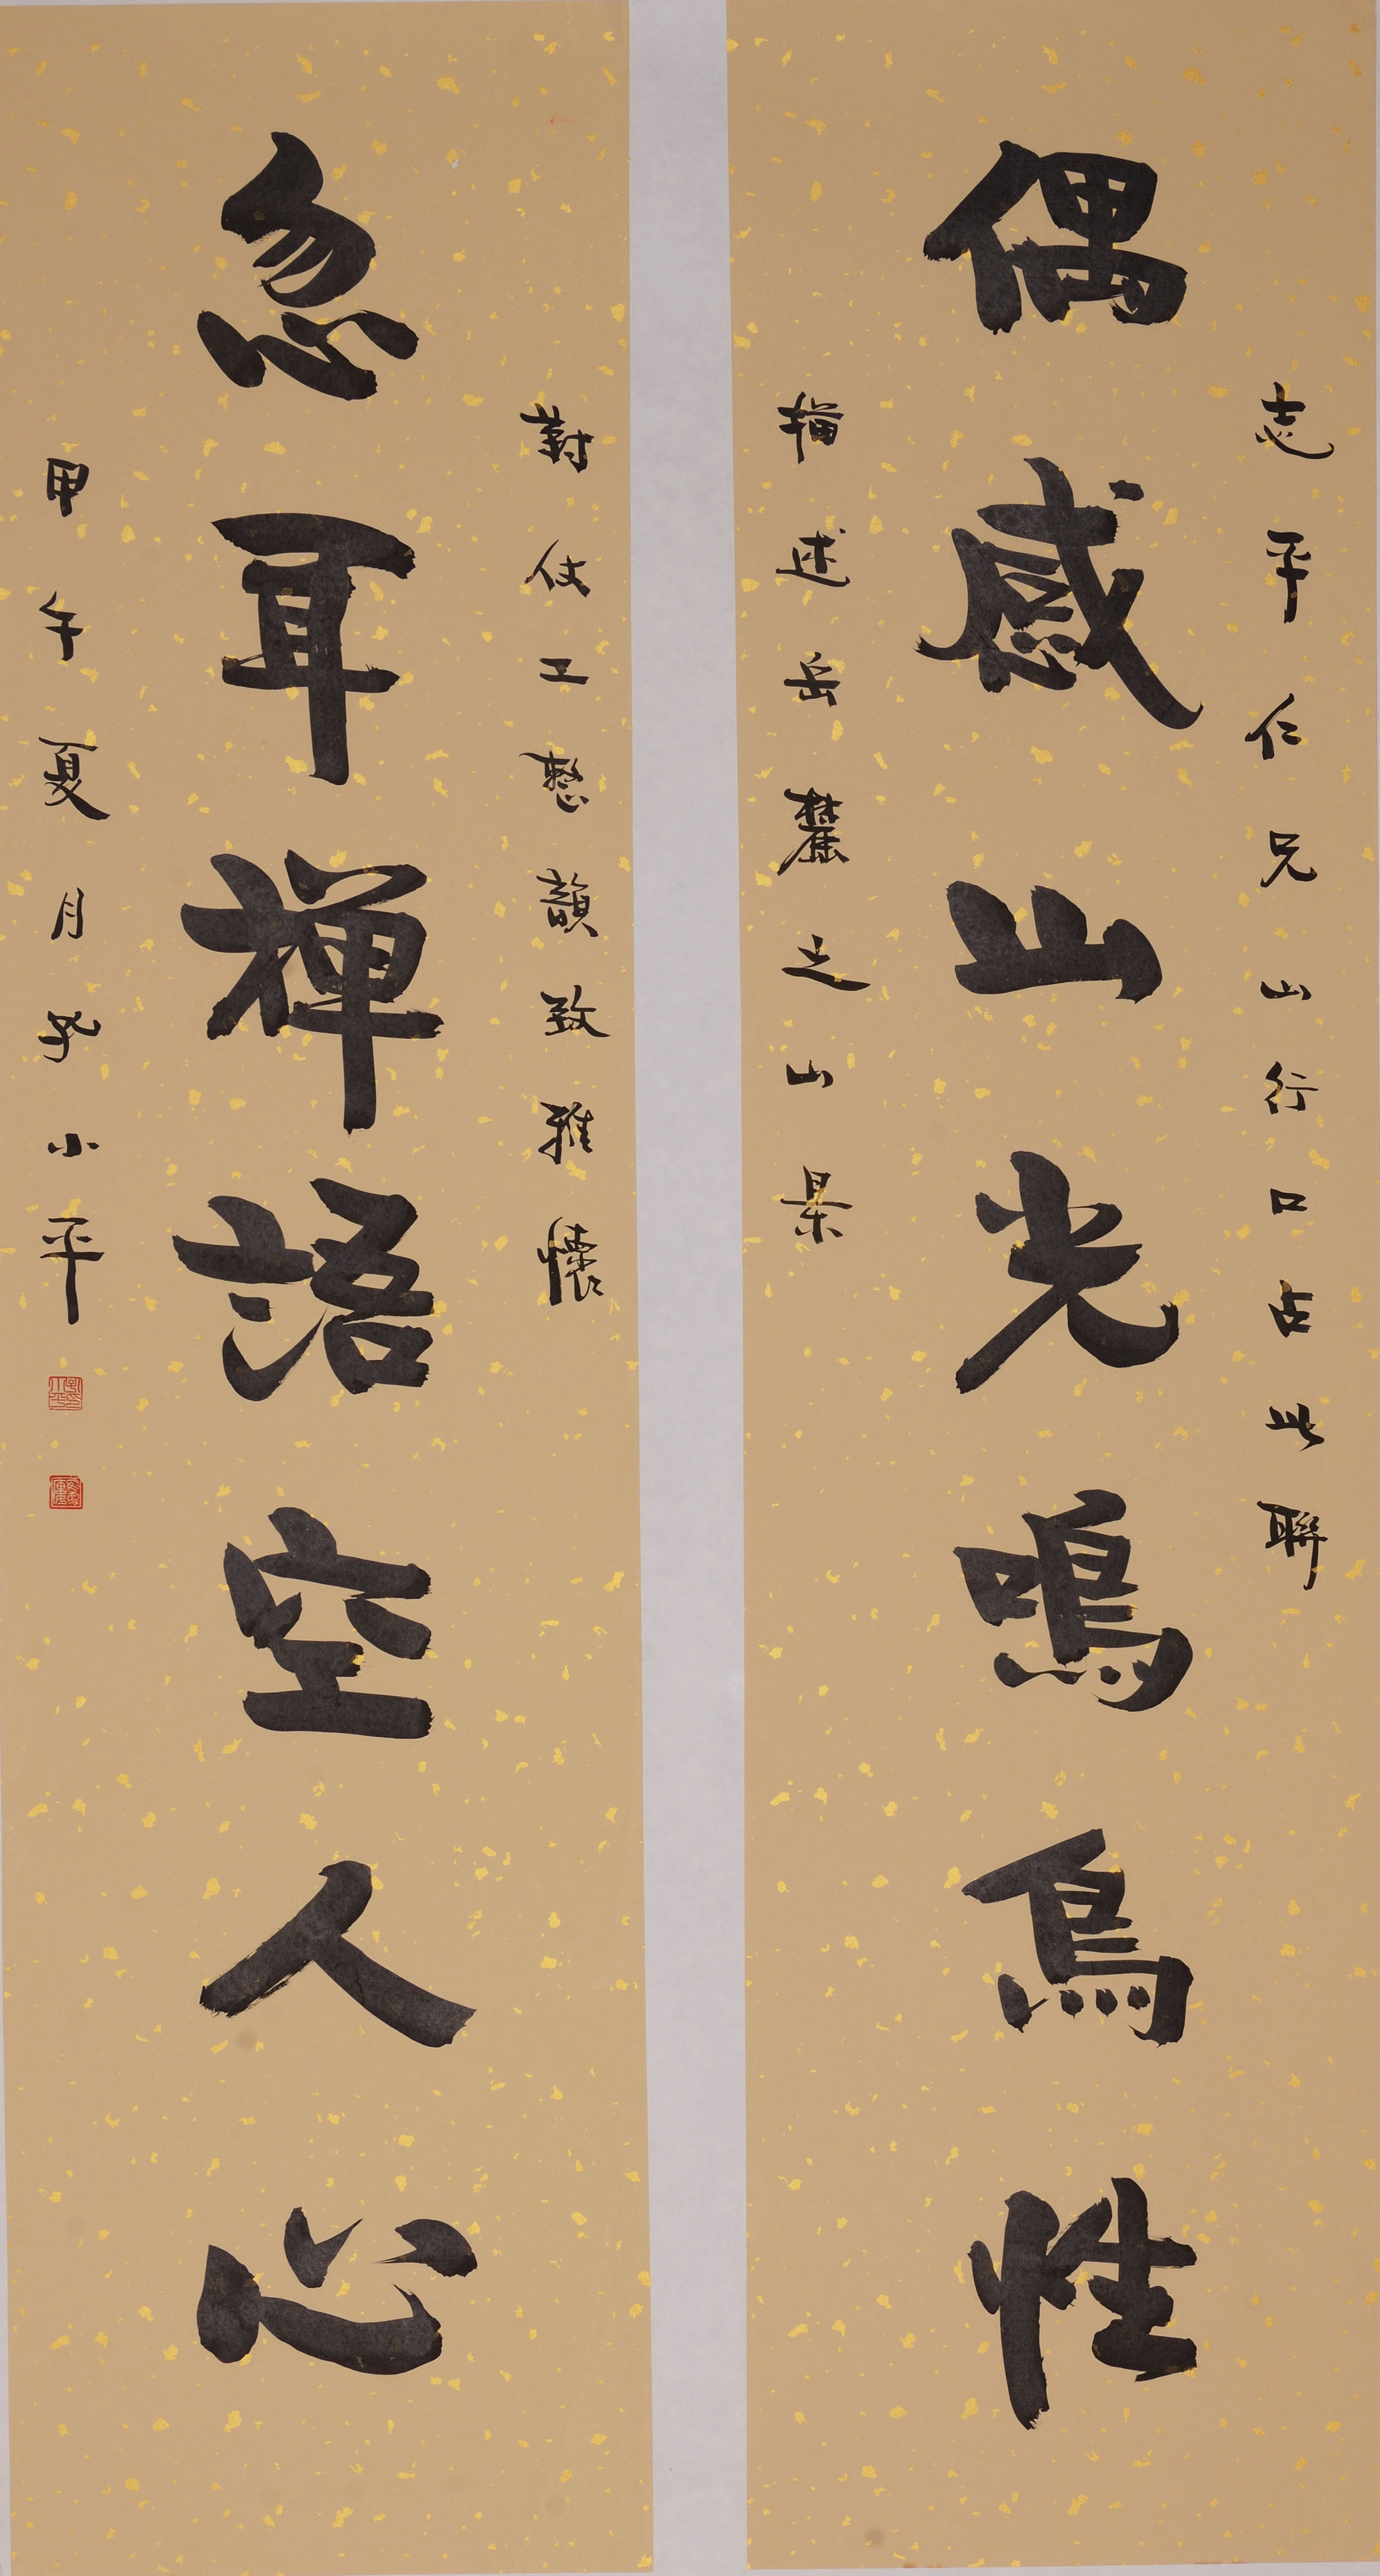 志平仁兄山行口占此聯
偶感山光鳴鳥性
描述岳麓之山景
對仗工整韻致雅懷
忽耳禅語空人心
甲午夏月孔小平